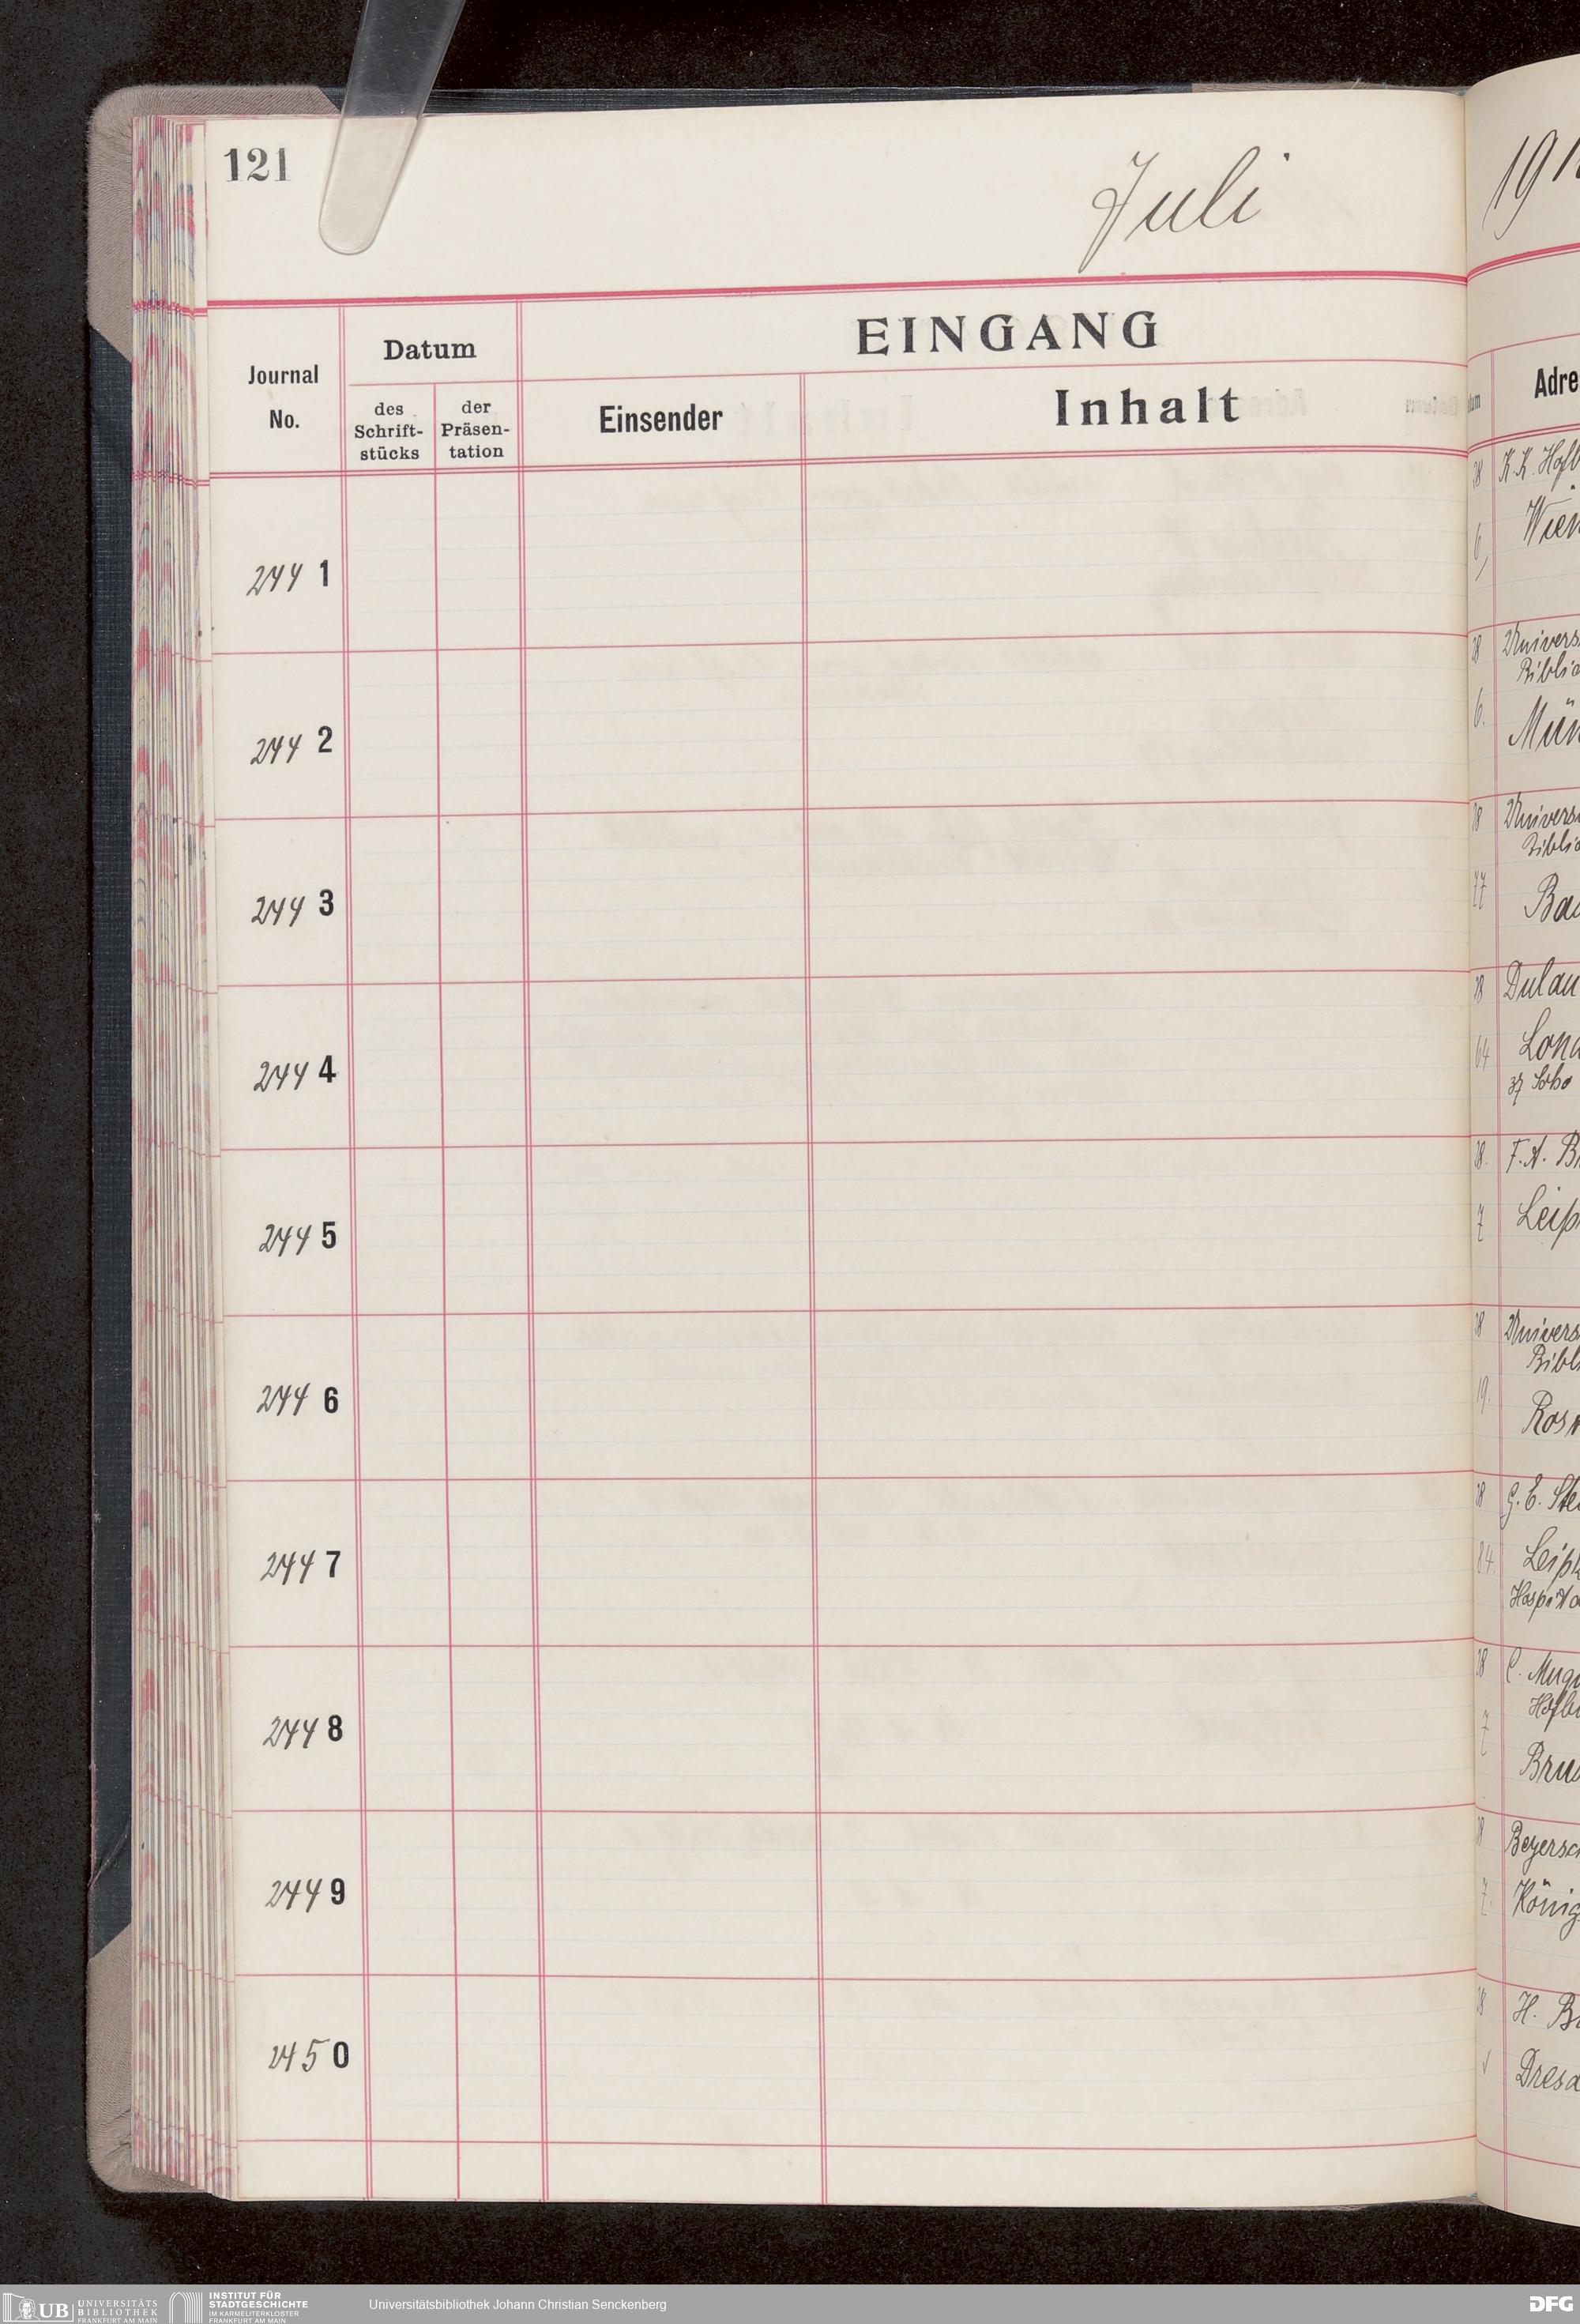 121
Juli
EINGANG
Datum
Journal
No.
des
Schrift-
stücks
der
Präsen-
tation
Einsender
Inhalt
244 1
244 2
244 3
244 4
244 5
244 6
244 7
244 8
244 9
245 0
Adre
28 K. K. Hofb
6, Wien
28 Univers
Biblio
6. Mün
28 Univers
Biblio
77 Bas
28 Dulau
64 Lond
37 Soho
28. F. A. Br
7 Leip
28 Univers
Bibli
19. Rost
28 G. E. Ste
84. Leipz
Hospita
28 C. Muqu
Hofbu
7 Brus
28 Beyersc
7. König
28 H. B
Dresd
UB UNIVERSITÄTS
BIBLIOTHEK
FRANKFURT AM MAIN
INSTITUT FÜR
STADTGESCHICHTE
IM KARMELITERKLOSTER
FRANKFURT AM MAIN
Universitätsbibliothek Johann Christian Senckenberg
DFG